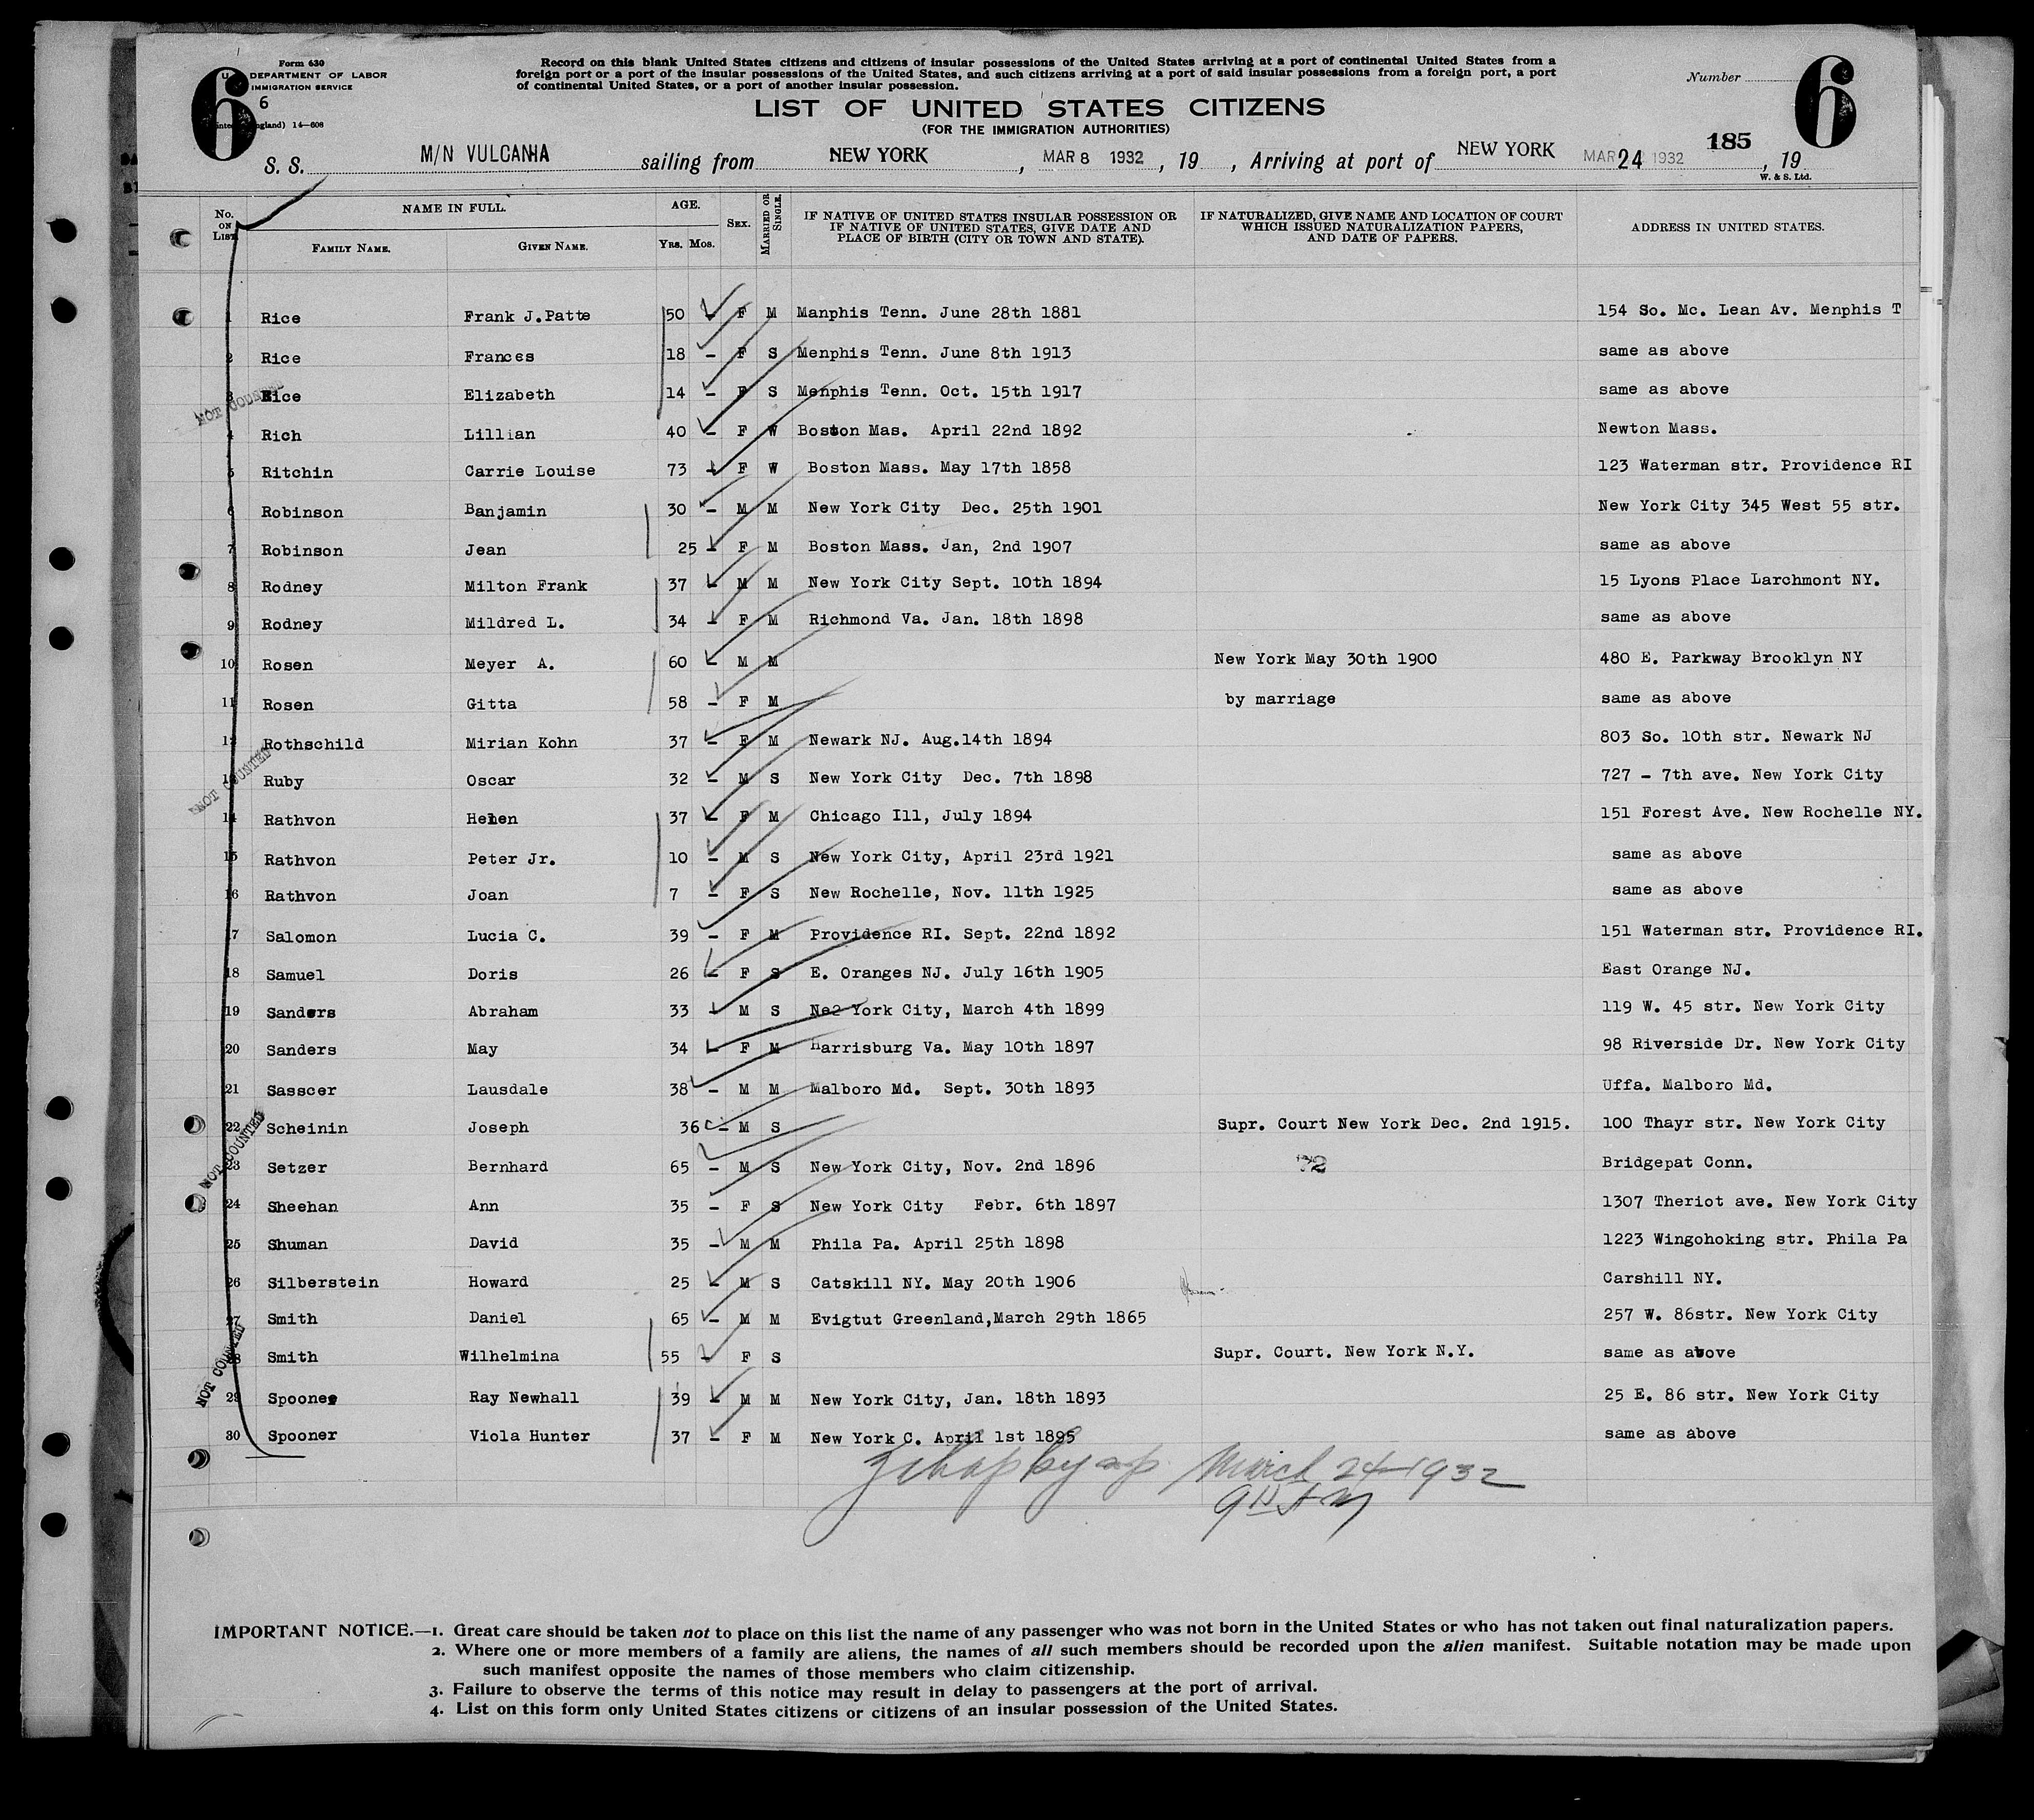 6 6
Form 630
U. DEPARTMENT OF LABOR
IMMIGRATION SERVICE
6
14—608
Record on this blank United States citizens and citizens of insular possessions of the United States arriving at a port of continental United States from a
foreign port or a port of the insular possessions of the United States, and such citizens arriving at a port of said insular possessions from a foreign port, a port
of continental United States, or a port of another insular possession.
Number
LIST OF UNITED STATES CITIZENS
(FOR THE IMMIGRATION AUTHORITIES)
185
S. S. M/N VULCANIA sailing from NEW YORK , MAR 8 1932 , 19 , Arriving at port of NEW YORK MAR 24 1932 , 19
W. & S. Ltd.
No. ON LIST NAME IN FULL. FAMILY NAME. GIVEN NAME. AGE. YRS. MOS. SEX. MARRIED OR SINGLE. IF NATIVE OF UNITED STATES INSULAR POSSESSION OR IF NATIVE OF UNITED STATES, GIVE DATE AND PLACE OF BIRTH (CITY OR TOWN AND STATE). IF NATURALIZED, GIVE NAME AND LOCATION OF COURT WHICH ISSUED NATURALIZATION PAPERS, AND DATE OF PAPERS. ADDRESS IN UNITED STATES.
1 Rice Frank J.Patte 50 - F M Manphis Tenn. June 28th 1881 154 So. Mc. Lean Av. Menphis T
2 Rice Frances 18 - F S Menphis Tenn. June 8th 1913 same as above
3 Rice Elizabeth 14 - F S Menphis Tenn. Oct. 15th 1917 same as above
NOT COUNTED
4 Rich Lillian 40 - F W Boston Mas. April 22nd 1892 Newton Mass.
5 Ritchin Carrie Louise 73 - F W Boston Mass. May 17th 1858 123 Waterman str. Providence RI
6 Robinson Banjamin 30 - M M New York City Dec. 25th 1901 New York City 345 West 55 str.
7 Robinson Jean 25 - F M Boston Mass. Jan, 2nd 1907 same as above
8 Rodney Milton Frank 37 - M M New York City Sept. 10th 1894 15 Lyons Place Larchmont NY.
9 Rodney Mildred L. 34 - F M Richmond Va. Jan. 18th 1898 same as above
10 Rosen Meyer A. 60 - M M New York May 30th 1900 480 E. Parkway Brooklyn NY
11 Rosen Gitta 58 - F M by marriage same as above
12 Rothschild Mirian Kohn 37 - F M Newark NJ. Aug.14th 1894 803 So. 10th str. Newark NJ
NOT COUNTED
13 Ruby Oscar 32 - M S New York City Dec. 7th 1898 727 - 7th ave. New York City
14 Rathvon Helen 37 - F M Chicago Ill, July 1894 151 Forest Ave. New Rochelle NY.
15 Rathvon Peter Jr. 10 - M S New York City, April 23rd 1921 same as above
16 Rathvon Joan 7 - F S New Rochelle, Nov. 11th 1925 same as above
17 Salomon Lucia C. 39 - F M Providence RI. Sept. 22nd 1892 151 Waterman str. Providence RI.
18 Samuel Doris 26 - F S E. Oranges NJ. July 16th 1905 East Orange NJ.
19 Sanders Abraham 33 - M S Ne2 York City, March 4th 1899 119 W. 45 str. New York City
20 Sanders May 34 - F M Harrisburg Va. May 10th 1897 98 Riverside Dr. New York City
21 Sasscer Lausdale 38 - M M Malboro Md. Sept. 30th 1893 Uffa. Malboro Md.
22 Scheinin Joseph 36 - M S Supr. Court New York Dec. 2nd 1915. 100 Thayr str. New York City
NOT COUNTED
23 Setzer Bernhard 65 - M S New York City, Nov. 2nd 1896 72 Bridgepat Conn.
24 Sheehan Ann 35 - F S New York City Febr. 6th 1897 1307 Theriot ave. New York City
25 Shuman David 35 - M M Phila Pa. April 25th 1898 1223 Wingohoking str. Phila Pa
26 Silberstein Howard 25 - M S Catskill NY. May 20th 1906 Carshill NY.
27 Smith Daniel 65 - M M Evigtut Greenland,March 29th 1865 257 W. 86str. New York City
28 Smith Wilhelmina 55 - F S Supr. Court. New York N.Y. same as above
NOT COUNTED
29 Spooner Ray Newhall 39 - M M New York City, Jan. 18th 1893 25 E. 86 str. New York City
30 Spooner Viola Hunter 37 - F M New York C. April 1st 1895 same as above
March 24-1932
IMPORTANT NOTICE.—1. Great care should be taken not to place on this list the name of any passenger who was not born in the United States or who has not taken out final naturalization papers.
2. Where one or more members of a family are aliens, the names of all such members should be recorded upon the alien manifest. Suitable notation may be made upon
such manifest opposite the names of those members who claim citizenship.
3. Failure to observe the terms of this notice may result in delay to passengers at the port of arrival.
4. List on this form only United States citizens or citizens of an insular possession of the United States.